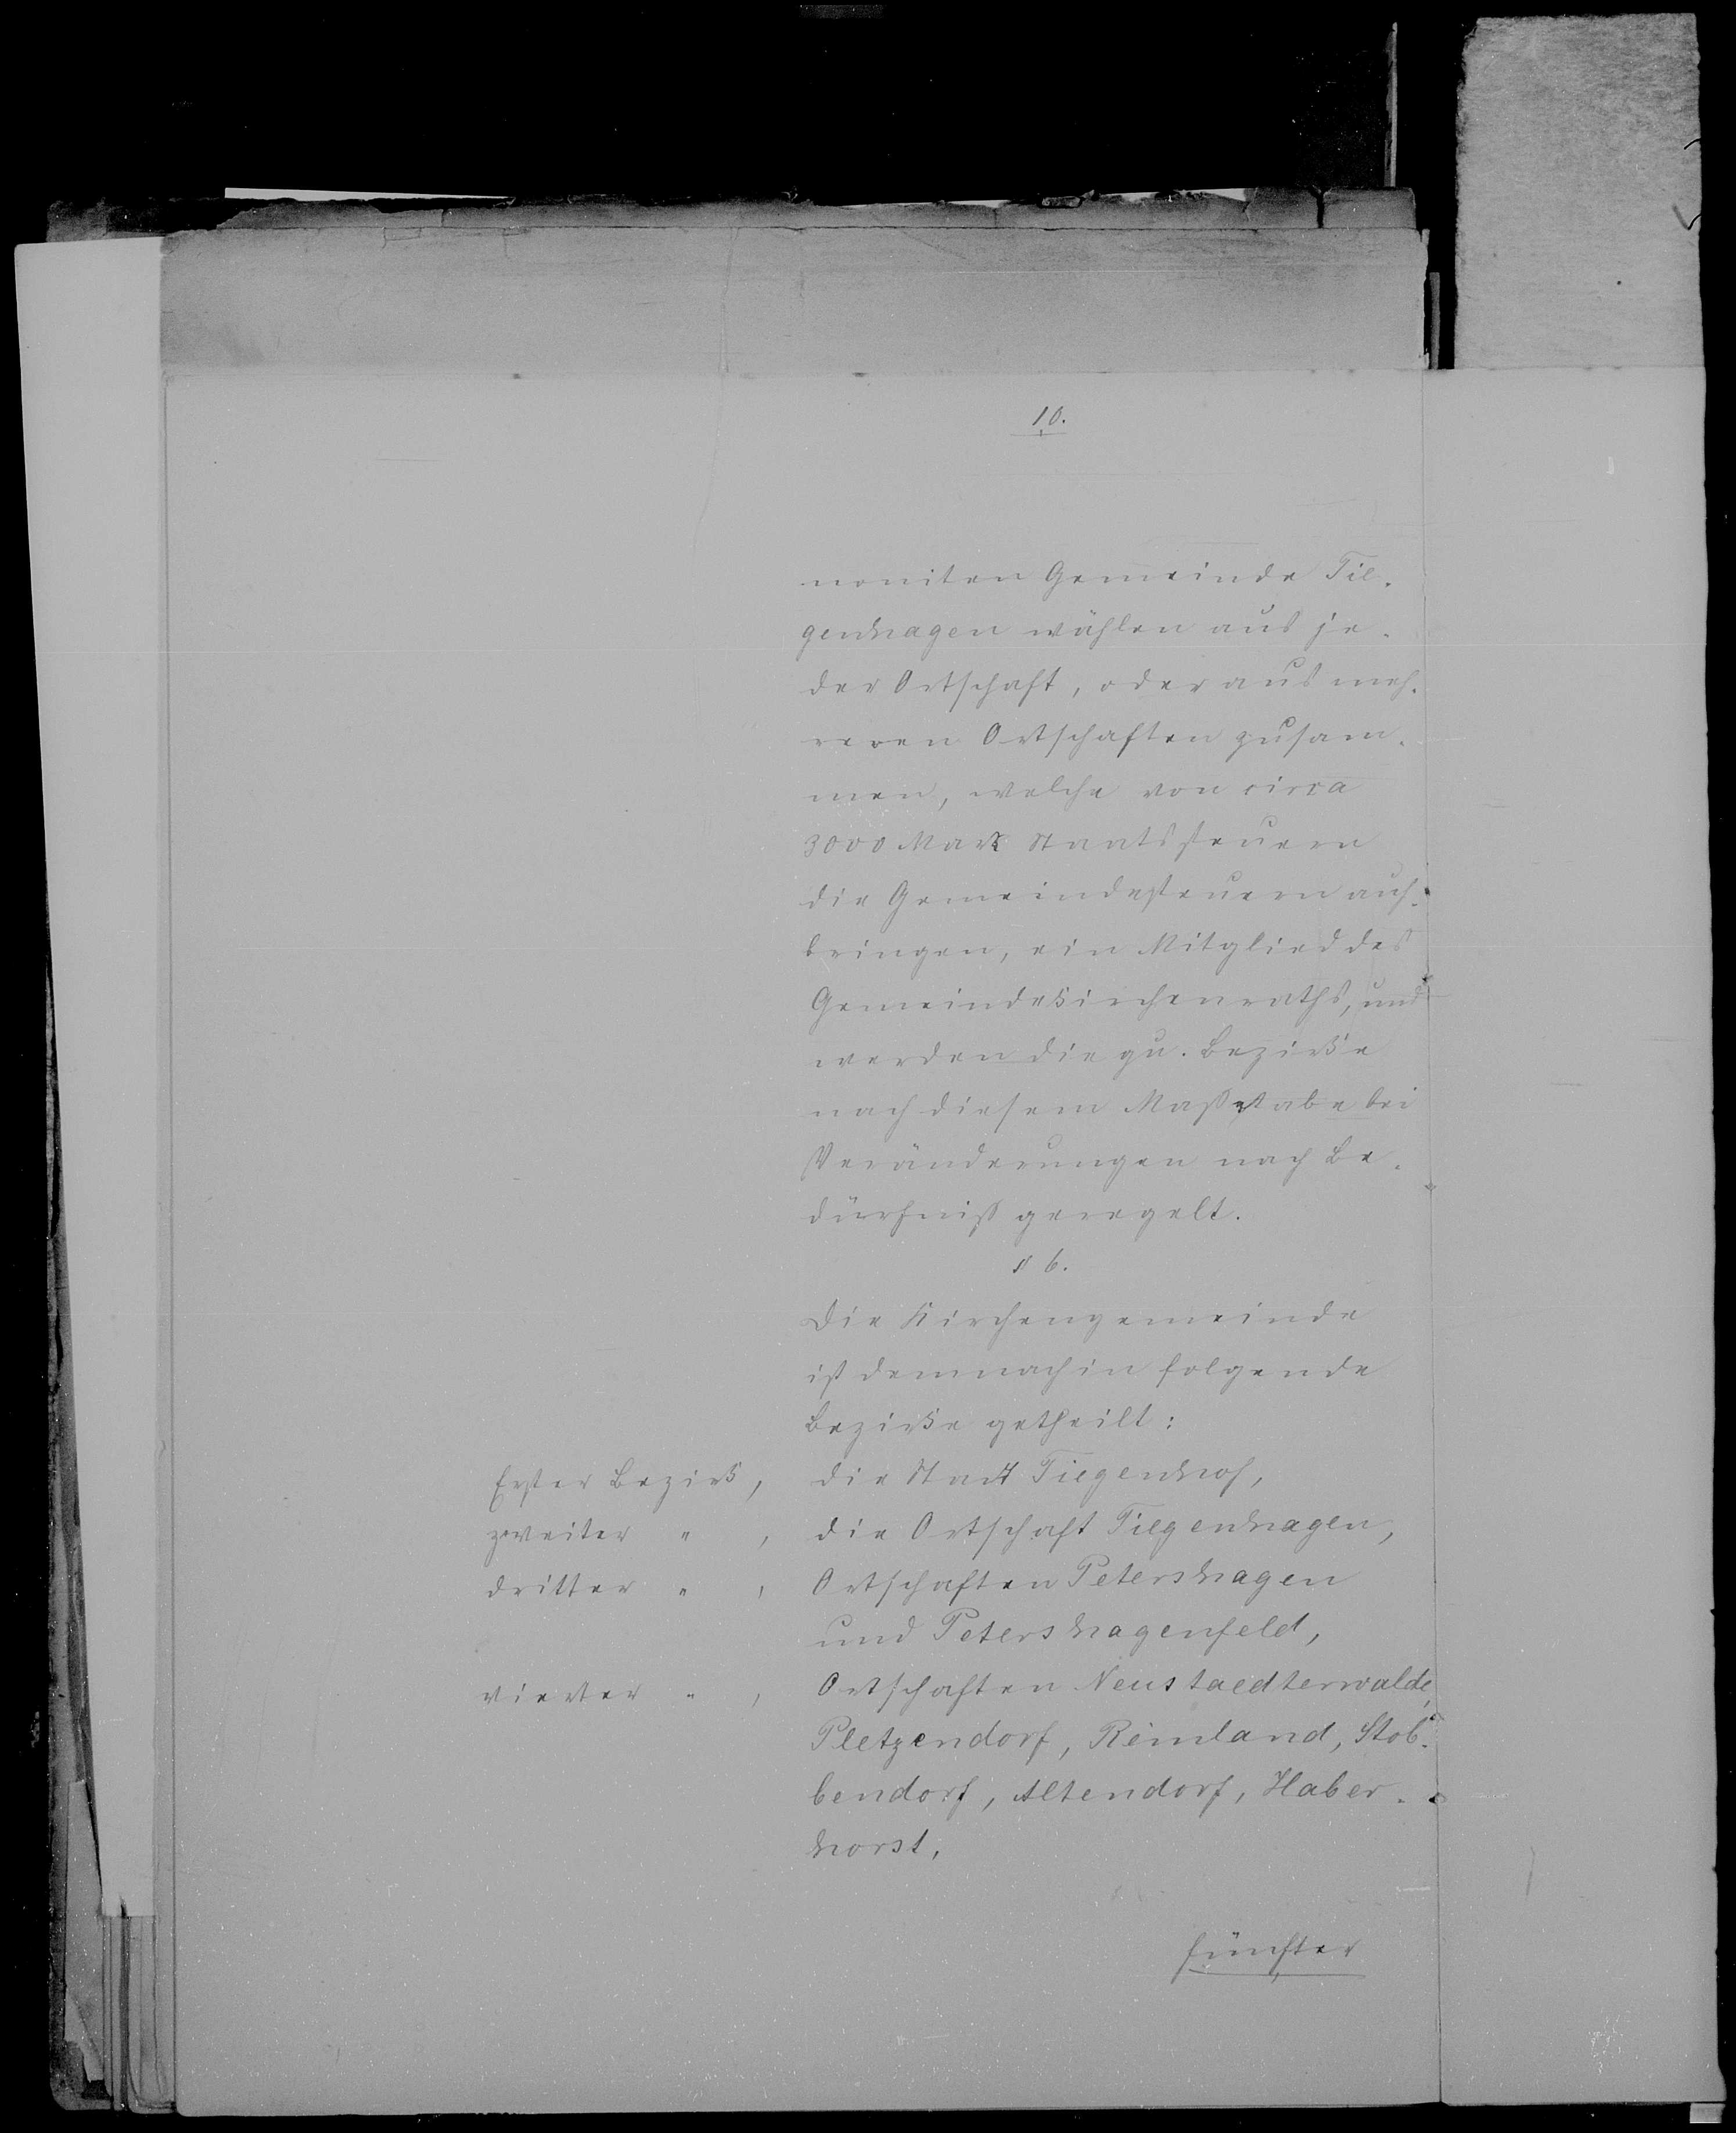 10.
noniten Gemeinde Tie-
genhagen wählen aus je-
der Ortschaft, oder aus meh-
reren Ortschaften zusam-
men, welche von circa
3000 Mark Staatssteuern
die Gemeindesteuern auf-
bringen, ein Mitglied des
Gemeindekirchenraths, und
werden die qu. Bezirke
nach diesem Maßstabe bei
Veränderungen nach Be-
dürfniß geregelt.
§ 6.
Die Kirchengemeinde
ist demnach in folgende
Bezirke getheilt:
Erster Bezirk, die Stadt Tiegenhof,
zweiter " , die Ortschaft Tiegenhagen,
dritter " , Ortschaften Petershagen
und Petershagenfeld,
vierter " , Ortschaften Neustaedterwalde,
Pletzendorf, Reinland, Stob-
bendorf, Altendorf, Haber-
horst,
fünfter